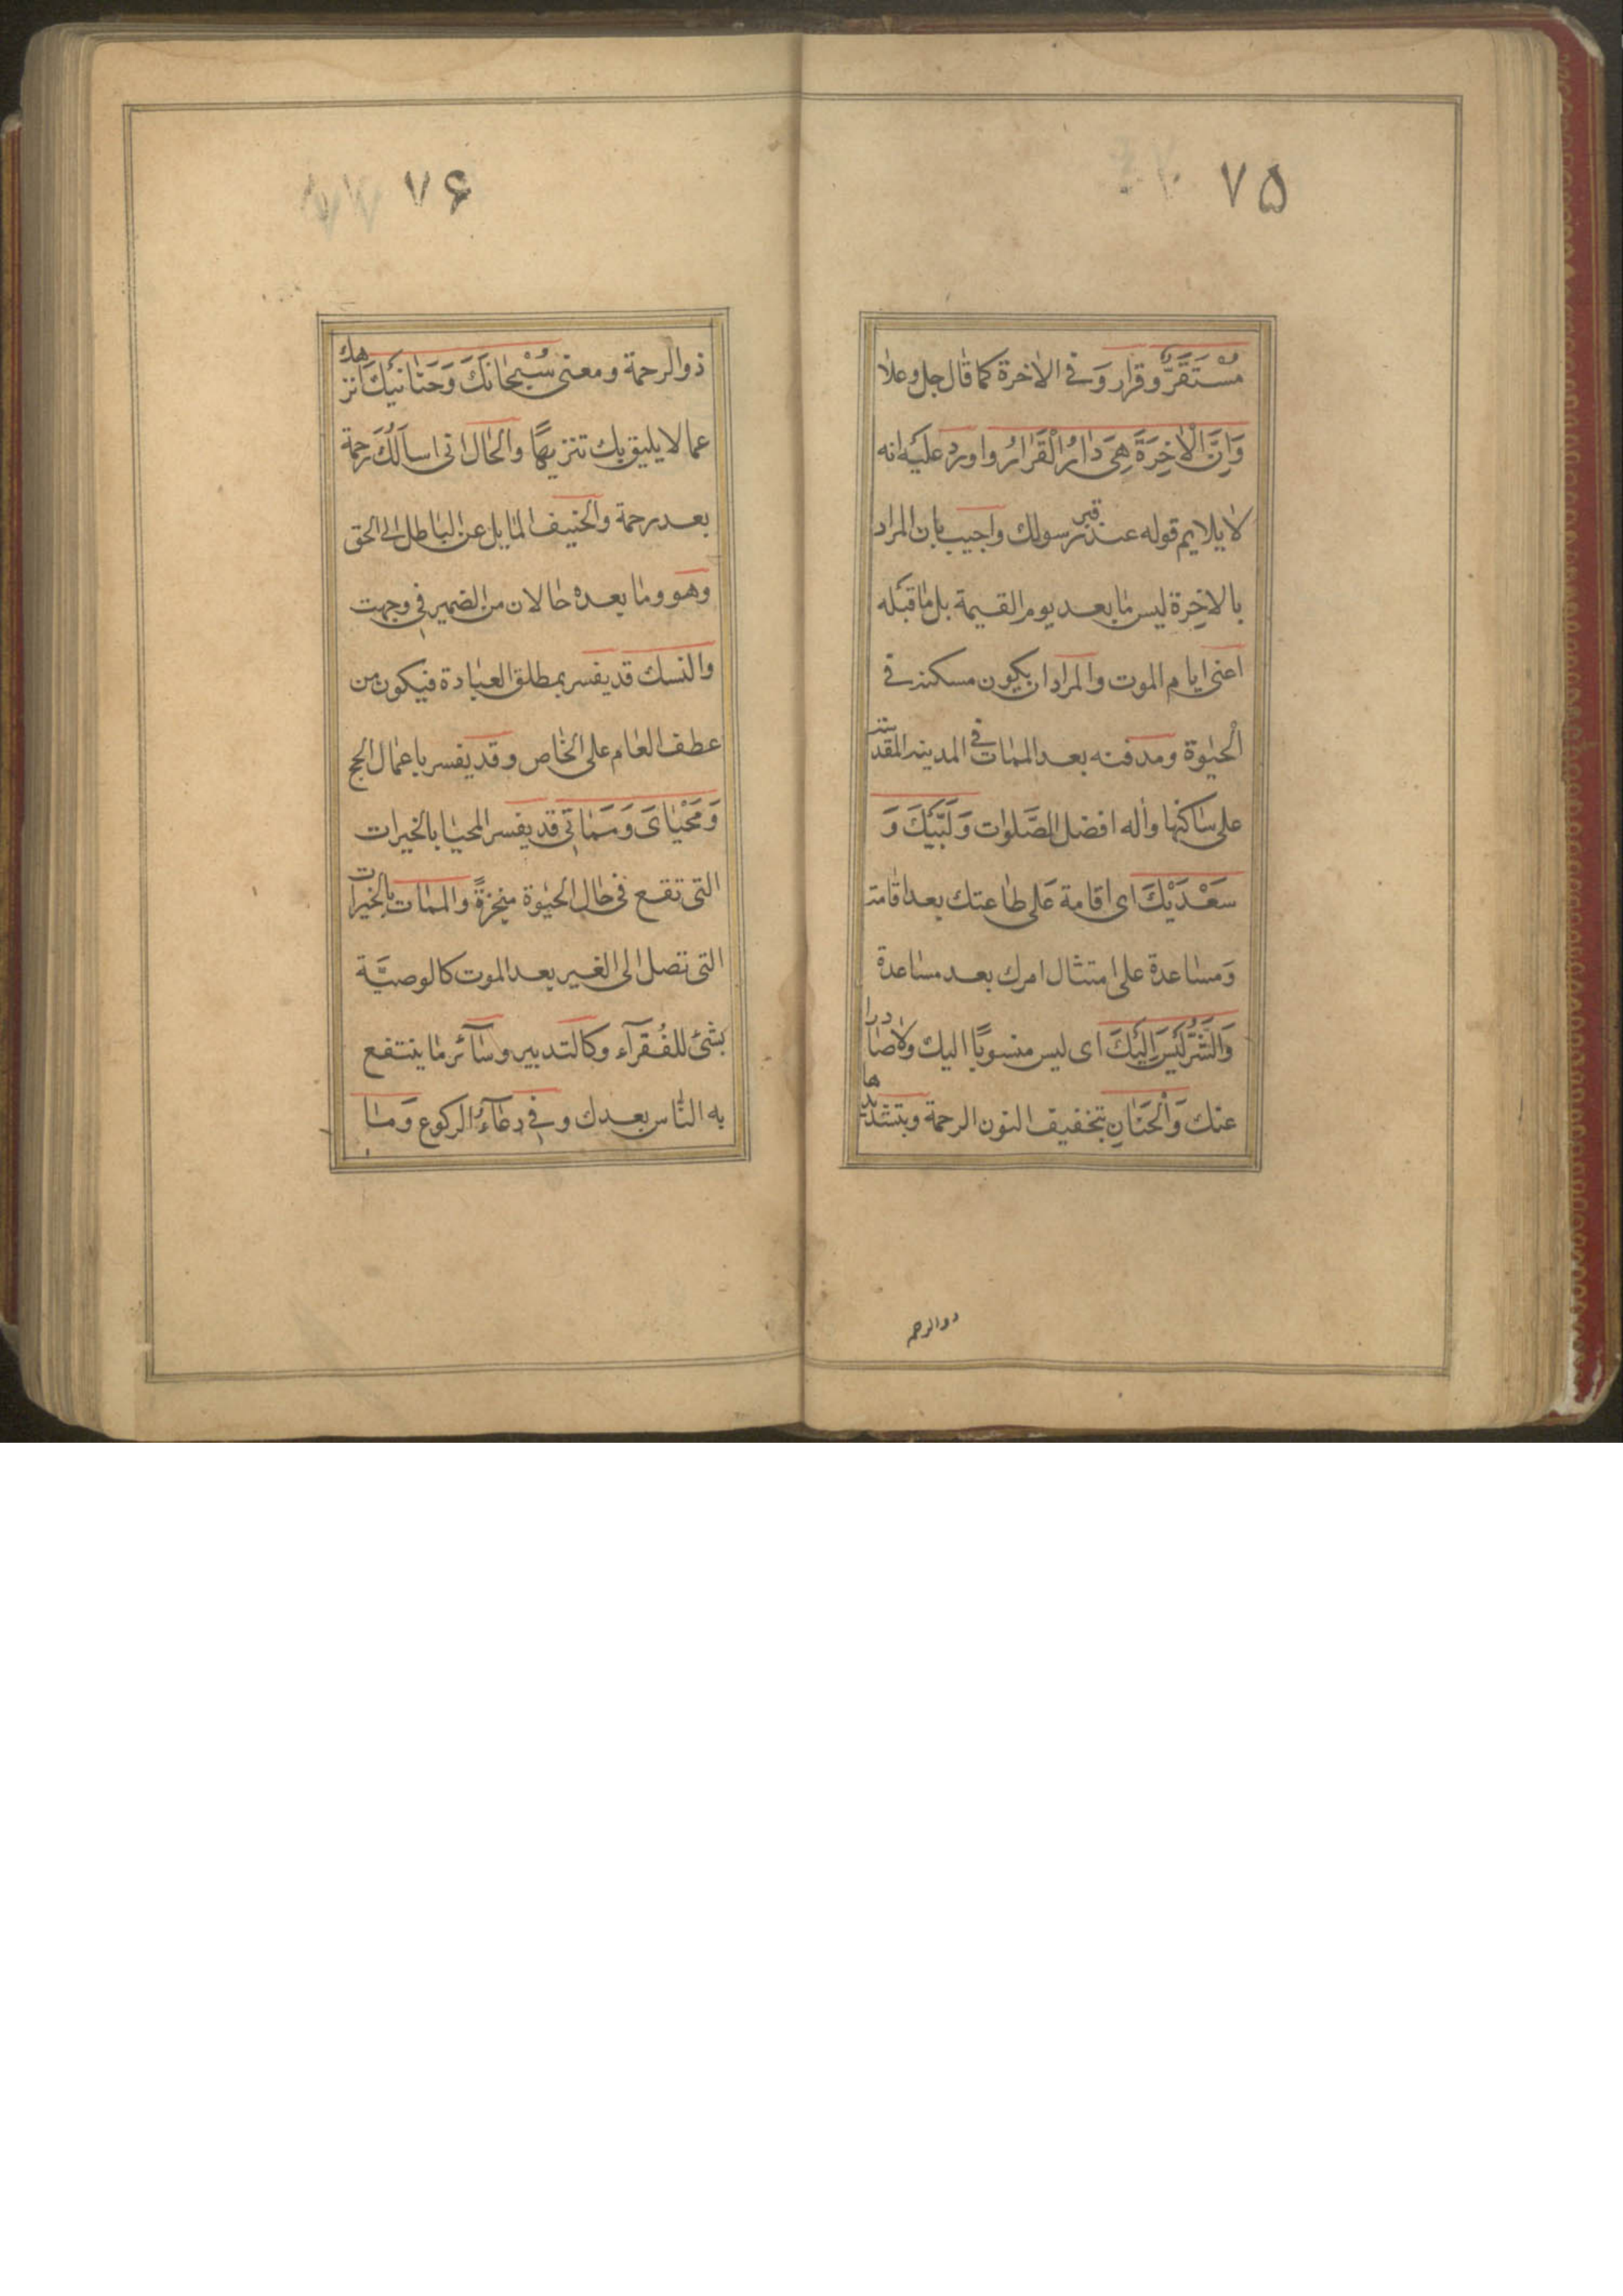 ۷۵
مُسْتَقَرٌّ وقرار وَفي الاخرة كما قال جل وعلا
وَاِنَّ الْاٰخِرَةَ هِيَ دٰارُ الْقَرٰارُ واورد عليه انه
لا يلايم قوله عند قبر رسولك واجيب بان المراد
بالاخِرة ليس مابعد يوم القيمة بل ماقبله
اعنى ايام الموت والمراد ان يكون مسكنه في
الْحيٰوة ومدفنه بعد الممات في المدينه المقدسة
على ساكنها واٰله افضل الصَّلوات وَلَبَّيْكَ وَ
سَعْدَيْكَ اى اقامة عَلى طاعتك بعد اقامة
وَمساعدة على امتثال امرك بعد مساعدة
وَالشَّرُّ لَيْسَ اِلَيْكَ اى ليس منسوبًا اليك ولاصادرا
عنك وَالْحَنٰانِ بتخفيف النون الرحمة وبتشديدها
ذوالرحمة
۷۶
ذوالرحمة ومعنى سُبْحٰانَكَ وَحَنٰانَيْكَ انزهك
عما لا يليق بك تنزيهًا والحال انى اسالُكَ رحمة
بعد رحمة والحنيف المايل عن الباطل الى الحق
وهو وما بعده حالان من الضمير في وجهت
والنسك قد يفسر بمطلق العبادة فيكون من
عطف العام على الخاص وقد يفسر باعمال الحج
وَمَحْيٰاىَ وَمَمٰاتي قد يفسر المحيا بالخيرات
التى تقع فى حال الحيٰوة منجزةً والممات بالخيرات
التى تصل الى الغير بعد الموت كالوصيَّة
بشئ للفُقرآء وكالتدبير وسآئر ما ينتفع
به النَّاس بعدك وفي دعآءُ الركوع وَمٰا